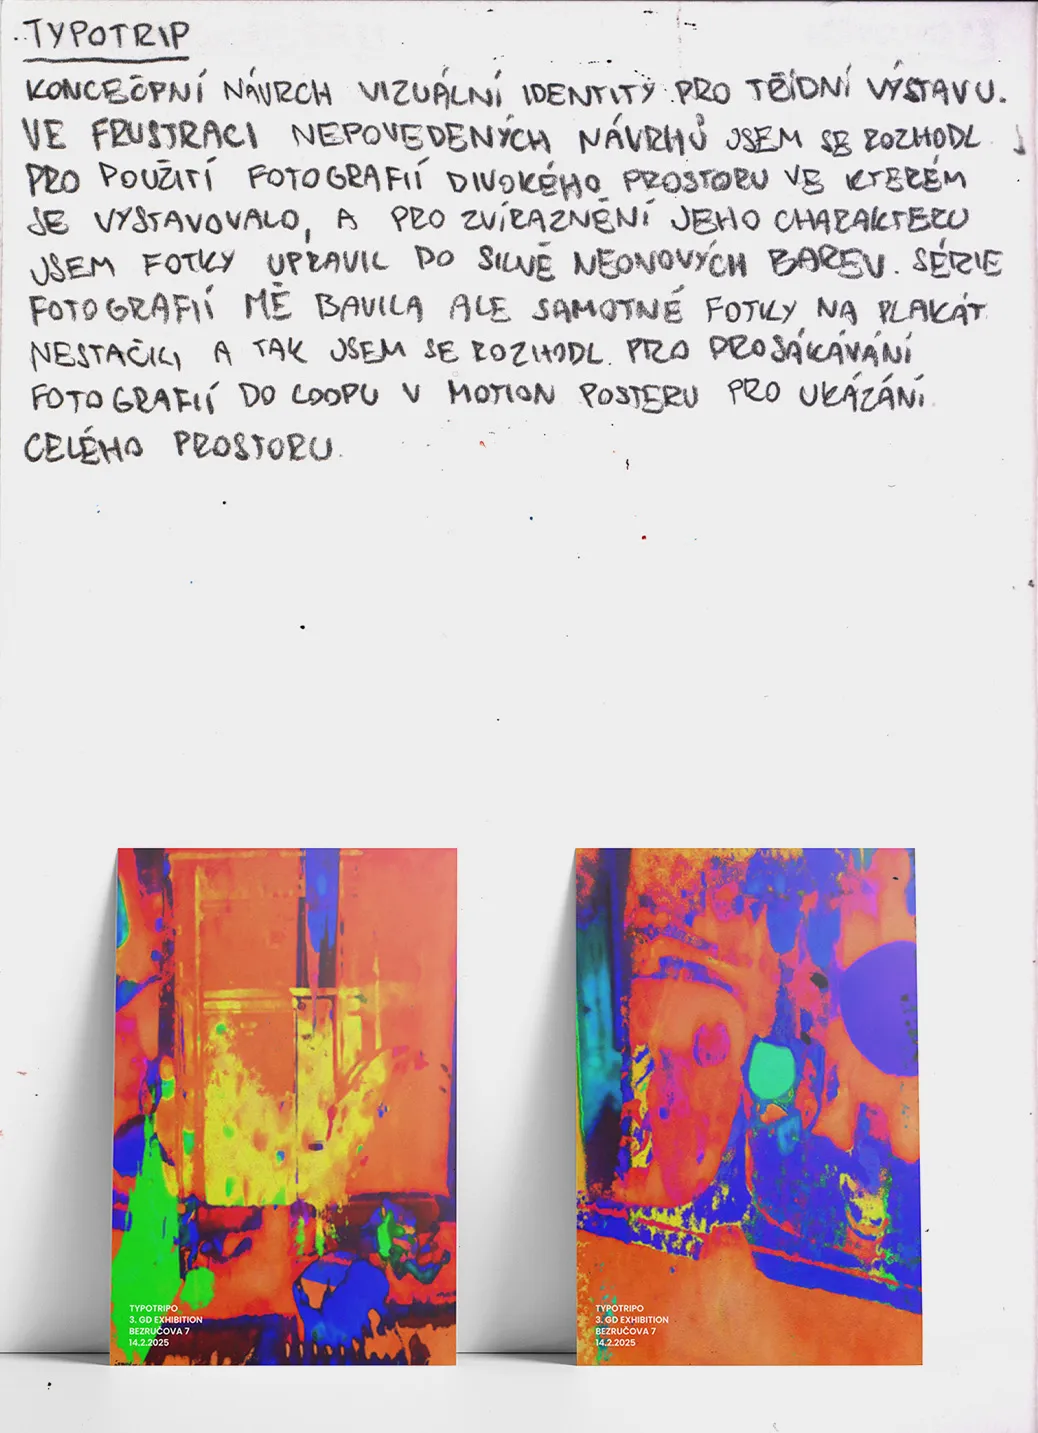 TYPOTRIP
KONCEČPNÍ NÁVRCH VIZUÁLNÍ IDENTITY PRO TŘÍDNÍ VÝSTAVU.
VE FRUSTRACI NEPOVEDENÝCH NÁVRHŮ JSEM SE ROZHODL
PRO POUŽITÍ FOTOGRAFIÍ DIVOKÉHO PROSTORU VE KTERÉM
SE VYSTAVOVALO, A PRO ZVÍRAZNĚNÍ JEHO CHARAKTERU
JSEM FOTKY UPRAVIL DO SILNĚ NEONOVÝCH BAREV. SÉRIE
FOTOGRAFIÍ MĚ BAVILA ALE SAMOTNÉ FOTKY NA PLAKÁT
NESTAČILI A TAK JSEM SE ROZHODL PRO PROSAKÁVÁNÍ
FOTOGRAFIÍ DO LOOPU V MOTION POSTERU PRO UKÁZÁNÍ
CELÉHO PROSTORU.
TYPOTRIPO
3. GD EXHIBITION
BEZRUČOVA 7
14.2.2025
TYPOTRIPO
3. GD EXHIBITION
BEZRUČOVA 7
14.2.2025